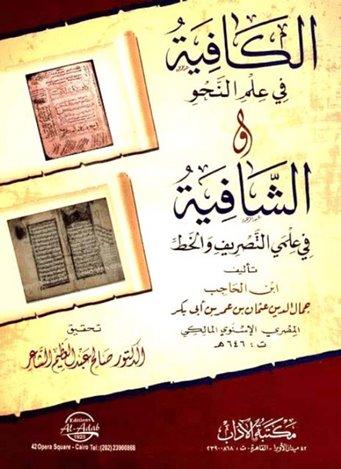 الكافية
في علم النحو
و
الشافية
في علمي التصريف والخط
تأليف
ابن الحاجب
جمال الدين عثمان بن عمر بن أبي بكر
المصري الإسنوي المالكي
ت : ٦٤٦ هـ
تحقيق
الدكتور صالح عبد العظيم الشاعر
Editions
Al-Adab
1923
42 Opera Square - Cairo Tel: (202) 23900868
مكتبة الآداب
٤٢ ميدان الأوبرا - القاهرة - ت : ٢٣٩٠٠٨٦٨